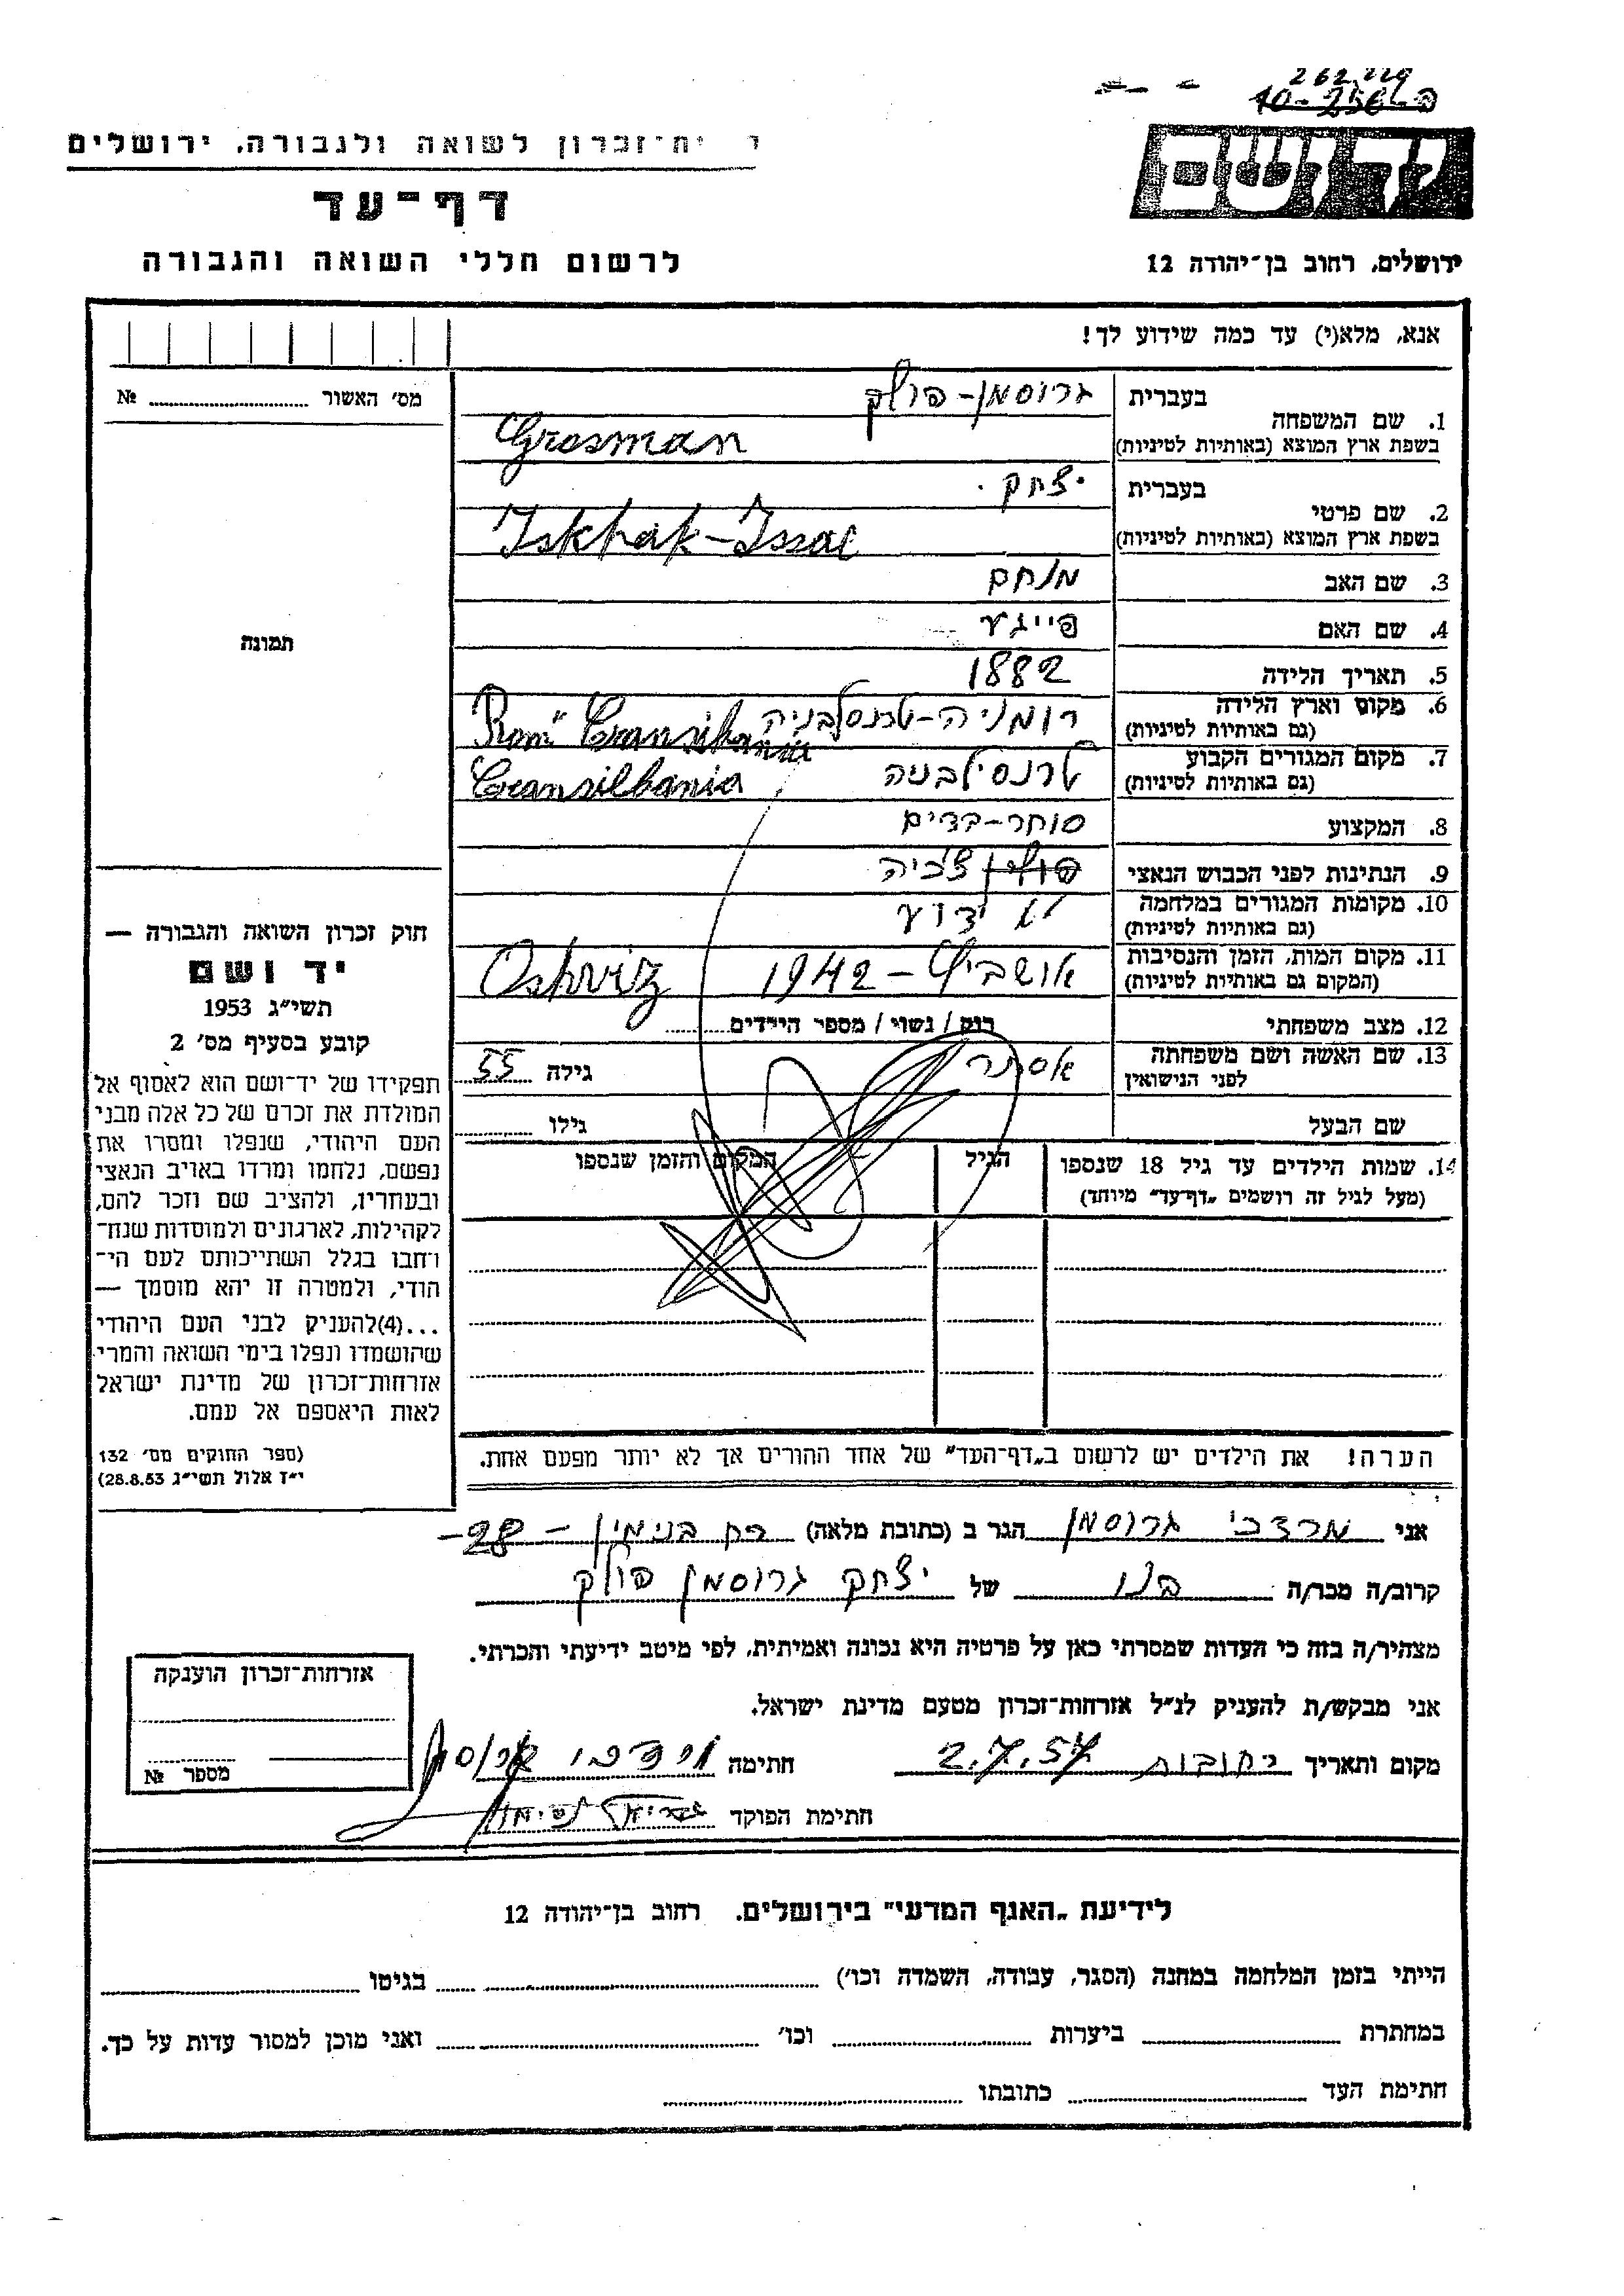 262229
10-256-פ
יד ושם
ירושלים, רחוב בן־יהודה 12
ית־זכרון לשואה ולגבורה, ירושלים
דף־עד
לרשום חללי השואה והגבורה
אנא, מלא(י) עד כמה שידוע לך!
מס׳ האשור № 
1. שם המשפחה
בעברית גרוסמן-פולק
בשפת ארץ המוצא (באותיות לטיניות) Grosman
2. שם פרטי
בעברית יצחק
בשפת ארץ המוצא (באותיות לטיניות) Iskhak-Issac
3. שם האב מנחם
4. שם האם פייגע
5. תאריך הלידה 1882
6. מקום וארץ הלידה רומניה-טרנסלבניה Rom" Transilbania
(גם באותיות לטיניות)
7. מקום המגורים הקבוע טרנסילבניה Transilbania
(גם באותיות לטיניות)
8. המקצוע סוחר-בדים
9. הנתינות לפני הכבוש הנאצי פולין צ׳כיה
10. מקומות המגורים במלחמה לא ידוע
(גם באותיות לטיניות)
11. מקום המות, הזמן והנסיבות אושביץ - 1942 Oshviz
(המקום גם באותיות לטיניות)
12. מצב משפחתי רוק / נשוי / מספר הילדים
13. שם האשה ושם משפחתה אסתר גילה 55
לפני הנישואין
שם הבעל גילו
14. שמות הילדים עד גיל 18 שנספו הגיל המקום והזמן שנספו
(מעל לגיל זה רושמים „דף־עד" מיוחד)
תמונה
חוק זכרון השואה והגבורה —
יד ושם
תשי״ג 1953
קובע בסעיף מס׳ 2
תפקידו של יד־ושם הוא לאסוף אל
המולדת את זכרם של כל אלה מבני
העם היהודי, שנפלו ומסרו את
נפשם, נלחמו ומרדו באויב הנאצי
ובעוזריו, ולהציב שם וזכר להם,
לקהילות, לארגונים ולמוסדות שנח־
רחבו בגלל השתייכותם לעם הי־
הודי, ולמטרה זו יהא מוסמך —
...(4)להעניק לבני העם היהודי
שהושמדו ונפלו בימי השואה והמרי
אזרחות־זכרון של מדינת ישראל
לאות היאספם אל עמם.
(ספר החוקים מס׳ 132
י״ז אלול תשי״ג 28.8.53)
הערה! את הילדים יש לרשום ב„דף־העד" של אחד ההורים אך לא יותר מפעם אחת.
אני מרדכי גרוסמן הגר ב (כתובת מלאה) רח בנימין - 28-
קרוב/ה מכר/ה בנו של יצחק גרוסמן פולק
מצהיר/ה בזה כי העדות שמסרתי כאן על פרטיה היא נכונה ואמיתית, לפי מיטב ידיעתי והכרתי.
אני מבקש/ת להעניק לנ״ל אזרחות־זכרון מטעם מדינת ישראל.
מקום ותאריך רחובות 2.7.57 חתימה מרדכי גרוסמן
חתימת הפוקד
אזרחות־זכרון הוענקה
מספר №
לידיעת „האגף המדעי" בירושלים, רחוב בן־יהודה 12
הייתי בזמן המלחמה במחנה (הסגר, עבודה, השמדה וכו׳) בגיטו
במחתרת ביערות וכו׳ ואני מוכן למסור עדות על כך.
חתימת העד כתובתו